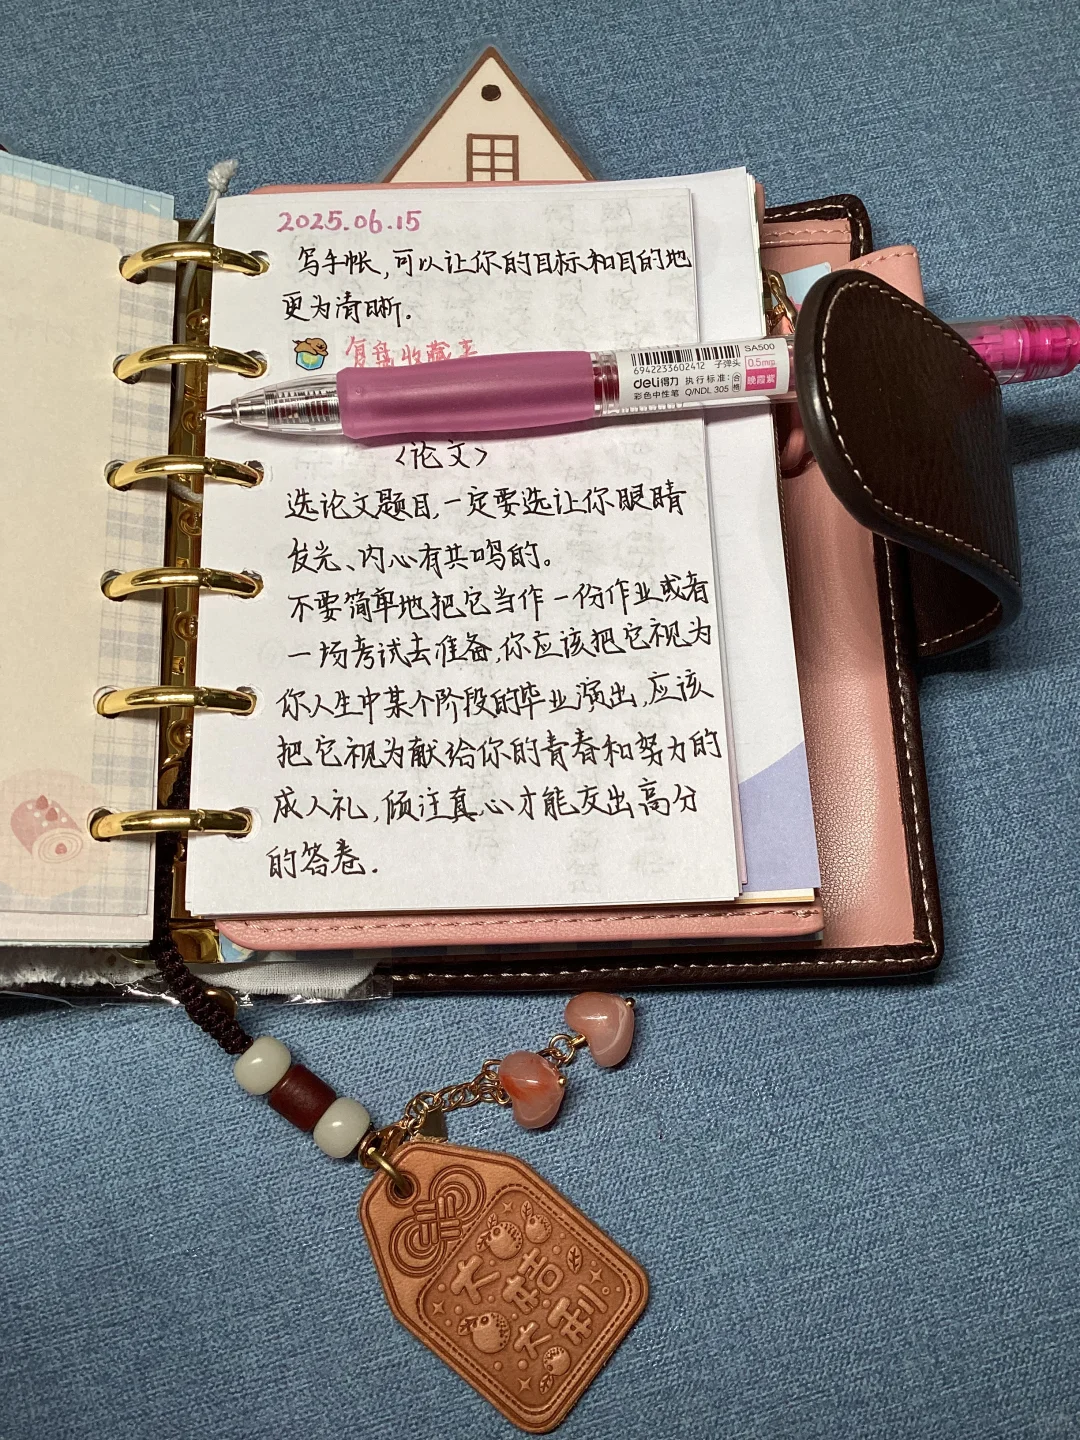 2025.06.15
写手帐,可以让你的目标和目的地
更为清晰.
复盘收藏夹
SA500
6942233602412 子弹头
0.5mm
deli得力 执行标准: 合格
晚霞紫
彩色中性笔 Q/NDL 305
<论文>
选论文题目,一定要选让你眼睛
发光、内心有共鸣的。
不要简单地把它当作一份作业或者
一场考试去准备,你应该把它视为
你人生中某个阶段的毕业演出,应该
把它视为献给你的青春和努力的
成人礼,倾注真心才能交出高分
的答卷.
大桔大利